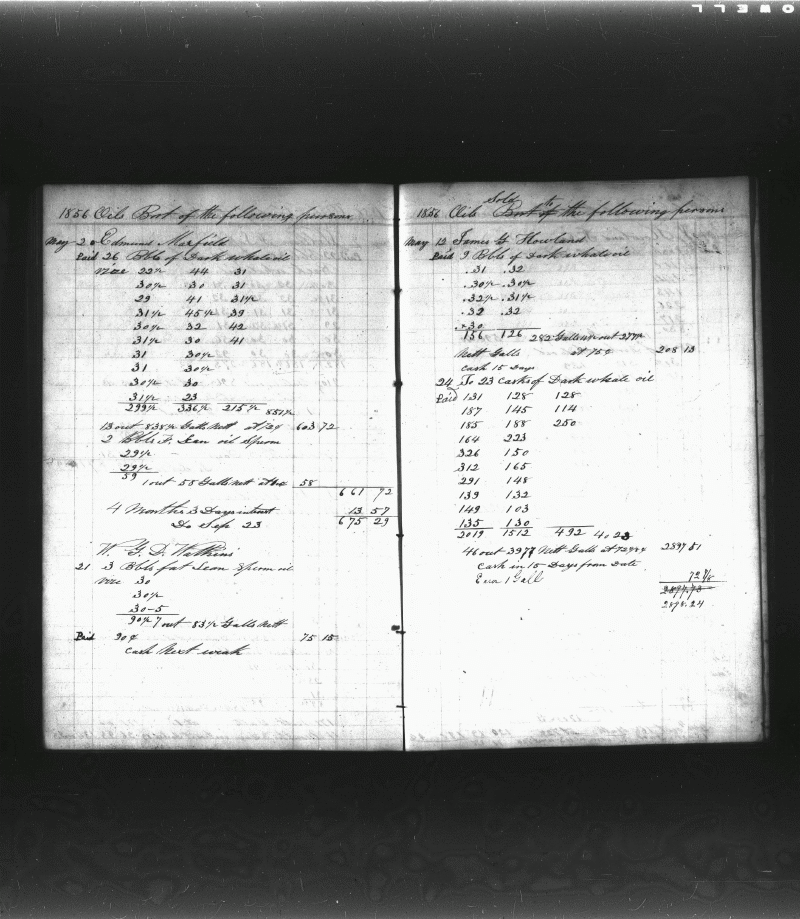 OWELL
1856 Oils Bort of the following persons
May 20 Edmund Maxfield
Paid 26 Bbls of Dark whale oil
vize 22½ 44 31
30½ 30 31
29 41 31½
31½ 45½ 39
30½ 32 42
31½ 30 41
31 30½
31 30½
30½ 30
31½ 23
299½ 336½ 215½ 851½
13 out 838½ Galls Nett at 72¢ 603 72
2 Bbls F. Lean oil Sperm
29½
29½
59
1 out 58 Galls Nett 58
661 72
4 Months 3 Days interest 13 57
Do Sep 23 675 29
W. G. D. Watkins
21 3 Bbls fat Lean Sperm oil
vize 30
30½
30-5
90½ 7 out 83½ Galls Nett
Paid 90¢ 75 15
Cash Next weak
1856 Oils Sold to Bort of the following persons
May 12 James G Howland
Paid 9 Bbls of Dark whale oil
.31 .32
.30½ .30½
.32½ .31½
.32 .32
.30
156 126 282 Galls out 277½
Nett Galls at 75¢ 208 13
Cash 15 Days
24 To 23 Casks of Dark whale oil
Paid 131 128 128
187 145 114
185 188 250
164 223
326 150
312 165
291 148
139 132
149 103
135 130
2019 1512 492 4023
46 out 3977 Nett Galls at 72 2897 81
Cash in 15 Days from Date
Error 1 Gall 72 7/8
2897.73
2898.24